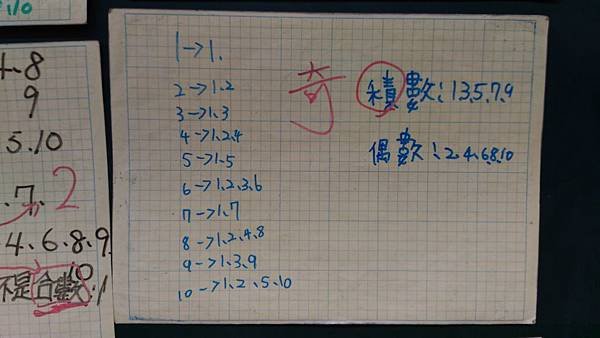 10
4、8
9
5.10
7、2
4、6、8、9
10
不是合數:1
1→1.
2→1.2
3→1.3
4→1.2.4
5→1.5
6→1.2.3.6
7→1.7
8→1.2.4.8
9→1.3.9
10→1.2.5.10
奇
積數:1.3.5.7.9
偶數:2.4.6.8.10